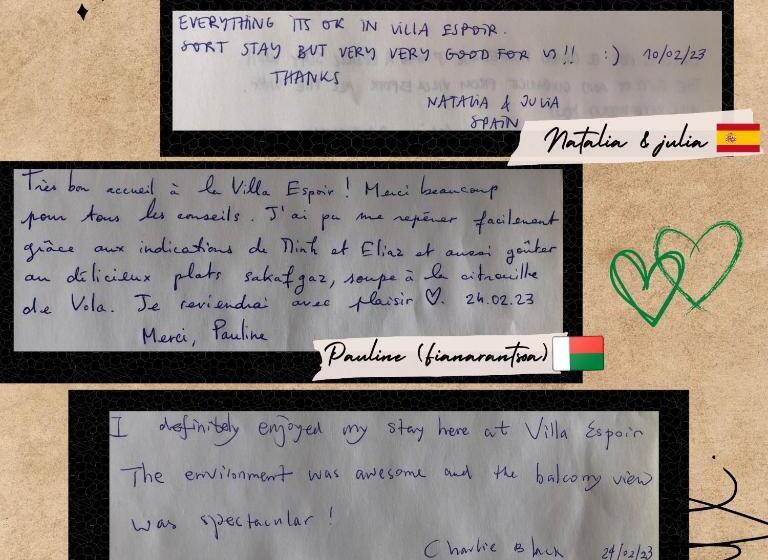 EVERYTHING ITS OK IN VILLA ESPOIR.
SORT STAY BUT VERY VERY GOOD FOR US!! :) 10/02/23
THANKS
NATALIA & JULIA
SPAIN
Natalia & julia
Très bon accueil à la Villa Espoir ! Merci beaucoup
pour tous les conseils. J'ai pu me repérer facilement
grâce aux indications de Minh et Eliaz et aussi goûter
au délicieux plats sakafgaz, soupe à la citrouille
de Vola. Je reviendrai avec plaisir ♡. 24.02.23
Merci, Pauline
Pauline (fianarantsoa)
I definitely enjoyed my stay here at Villa Espoir
The environment was awesome and the balcony view
was spectacular !
Charlie Black 24/02/23